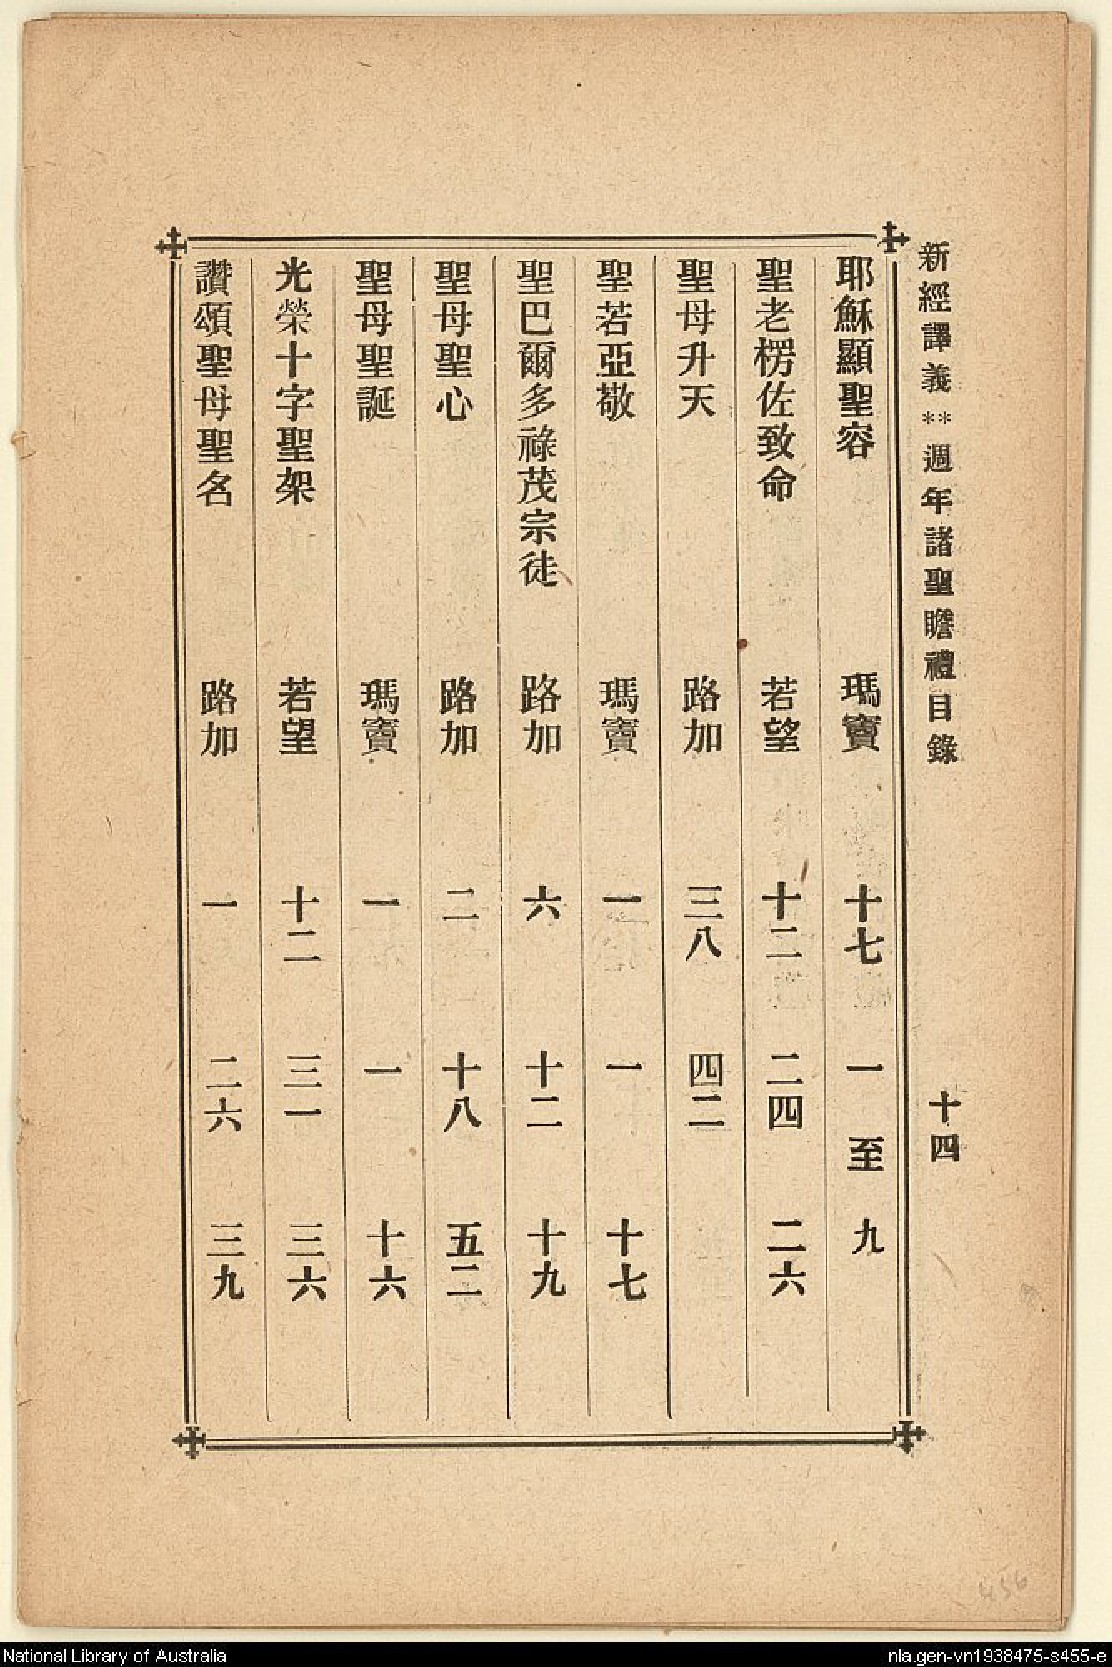 新經譯義**週年諸聖瞻禮目錄 十四
耶穌顯聖容 瑪竇 十七 一至九
聖老楞佐致命 若望 十二 二四 二六
聖母升天 路加 三八 四二
聖若亞敬 瑪竇 一 一 十七
聖巴爾多祿茂宗徒 路加 六 十二 十九
聖母聖心 路加 二 十八 五二
聖母聖誕 瑪竇 一 一 十六
光榮十字聖架 若望 十二 三一 三六
讚頌聖母聖名 路加 一 二六 三九
456
National Library of Australia
nla.gen-vn1938475-s455-e